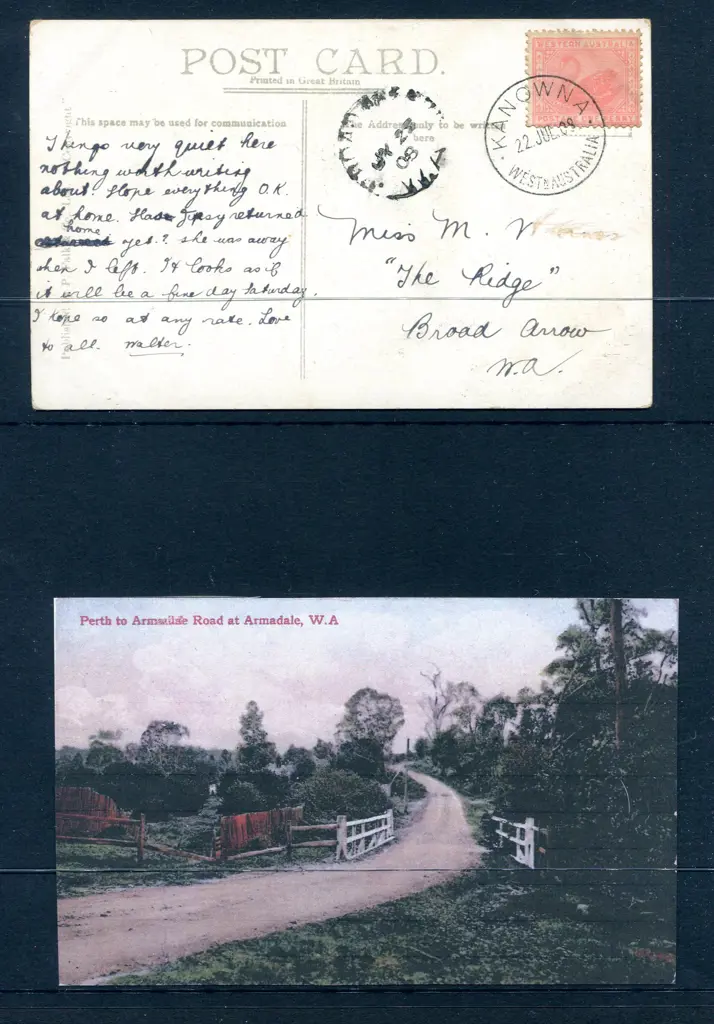 POST CARD.
Printed in Great Britain
This space may be used for communication
The Address only to be written here
WESTERN AUSTRALIA
POSTAGE ONE PENNY
KANOWNA
22 JUL 09
WESTN AUSTRALIA
Things very quiet here
nothing worth writing
about. Hope everything O.K.
at home. Has Gipsy returned
home
yet? she was away
when I left. It looks as if
it will be a fine day Saturday.
I hope so at any rate. Love
to all. Walter.
Miss M.
"The Ridge"
Broad Arrow
W.A.
Perth to Armadale Road at Armadale, W.A